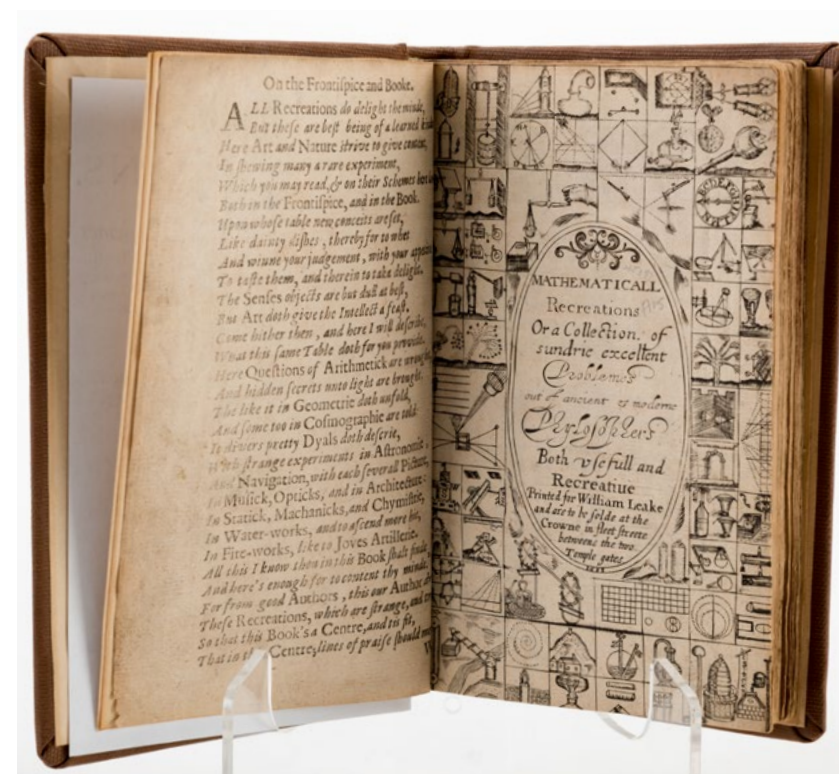 On the Frontiſpice and Booke.
ALL Recreations do delight the minde,
But theſe are beſt being of a learned
Here Art and Nature ſtrive to give content,
In ſhewing many a rare experiment,
Which you may read, & on their Schemes
Both in the Frontiſpice, and in the Book.
Upon whoſe table new conceits are ſet,
Like dainty diſhes, thereby for to whet
And winne your judgement, with your
To taſte them, and therein to take delight.
The Senſes objects are but dull at beſt,
But Art doth give the Intellect a feaſt.
Come hither then, and here I will deſcribe,
What this ſame Table doth for you provide.
Here Queſtions of Arithmetick are wrought,
And hidden ſecrets unto light are brought.
The like it in Geometrie doth unfold,
And ſome too in Coſmographie are told:
It divers pretty Dyals doth deſcrie,
With ſtrange experiments in Aſtronomie,
And Navigation, with each ſeverall Picture,
In Muſick, Opticks, and in Architecture:
In Statick, Machanicks, and Chymiſtrie,
In Water-works, and to aſcend more hie,
In Fire-works, like to Joves Artillerie.
All this I know thou in this Book ſhalt finde,
And here's enough for to content thy minde.
For from good Authors, this our Author
Theſe Recreations, which are ſtrange, and
So that this Book's a Centre, and tis fit,
That in Centre; lines of praiſe ſhould
MATHEMATICALL
Recreations
Or a Collection, of
sundrie excellent
Problemes
out of ancient & moderne
Phylosophers
Both vsefull and
Recreatiue
Printed for William Leake
and are to be solde at the
Crowne in fleet streete
betweene the two
Temple gates